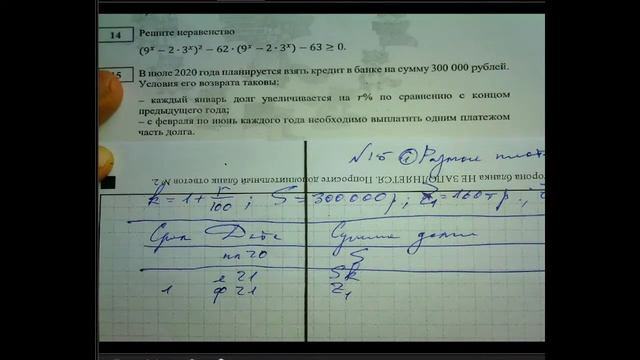 14 Решите неравенство
(9ˣ − 2 · 3ˣ)² − 62 · (9ˣ − 2 · 3ˣ) − 63 ≥ 0.
15 В июле 2020 года планируется взять кредит в банке на сумму 300 000 рублей.
Условия его возврата таковы:
– каждый январь долг увеличивается на r% по сравнению с концом
предыдущего года;
– с февраля по июнь каждого года необходимо выплатить одним платежом
часть долга.
N15 ①
НЕ ЗАПОЛНЯЕТСЯ. Попросите дополнительный бланк ответов № 2.
k = 1 + r/100 ; S = 300.000 р ; z₁ = 160 тр. ;
Срок Дата Сумма долга
S
я 21 Sk
1 ф 21 z₁